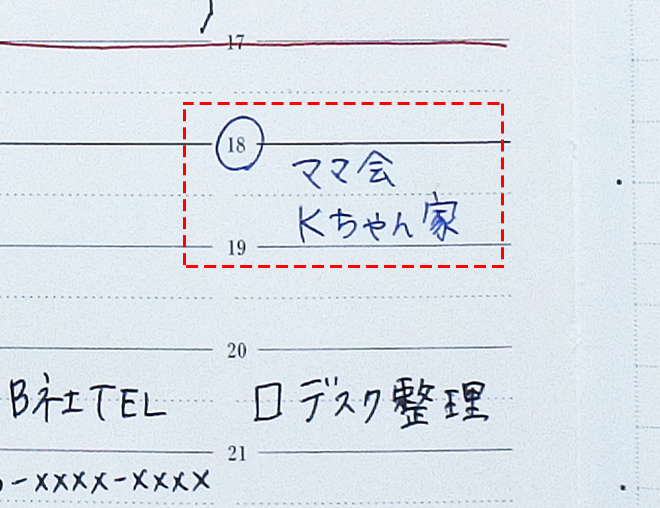 17
18
ママ会
Kちゃん家
19
20
B社TEL
□ デスク整理
21
-xxxx-xxxx